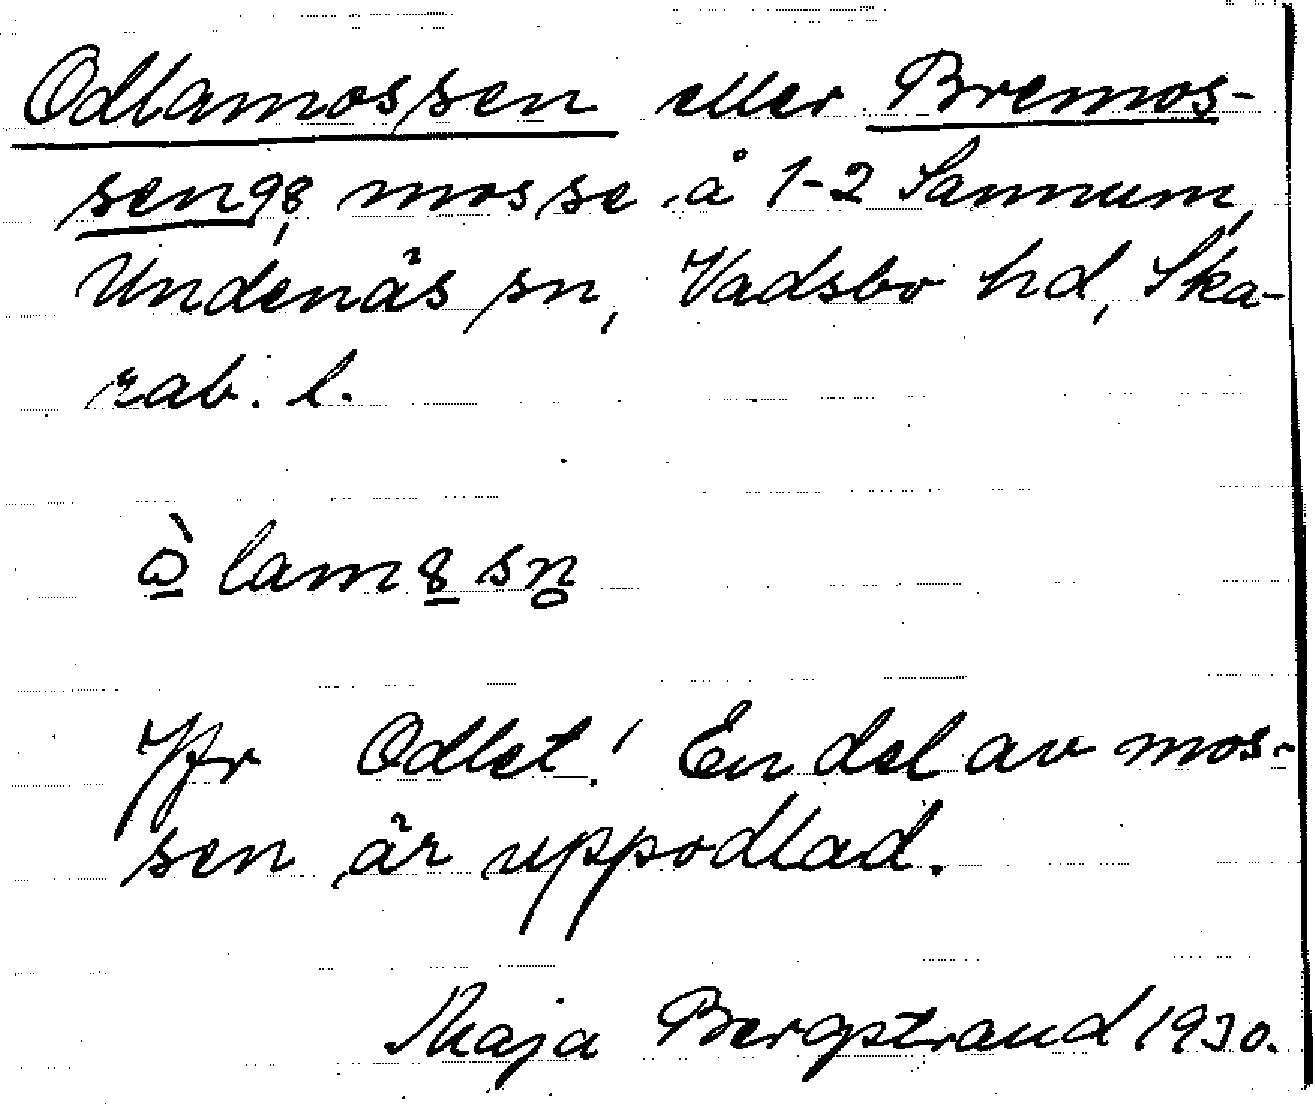 Odlamossen eller Bremos-
sen 98, mosse å 1-2 Sannum,
Undenäs sn, Vadsbo hd, Ska-
rab. l.
Jfr Odlet! En del av mos-
sen är uppodlad.
Maja Bergstrand 1930.